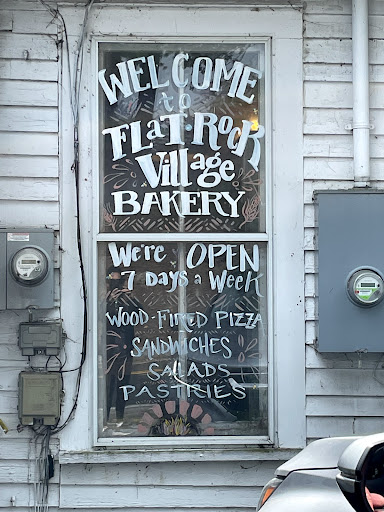 WELCOME
to
FLAT·ROCK
Village
BAKERY
We're OPEN
7 DAYS a WEEK
WOOD-FIRED PIZZA
SANDWICHES
SALADS
PASTRIES